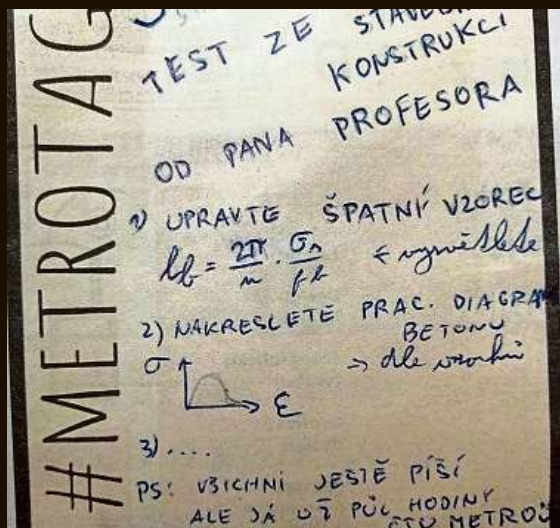 #METROTAG
TEST ZE
KONSTRUKCÍ
OD PANA PROFESORA
1) UPRAVTE ŠPATNÍ VZOREC
= 2π/n · ← vysvětlete
2) NAKRESLETE PRAC. DIAGRAM
BETONU
σ → dle
ε
3) ....
PS: VŠICHNI JEŠTĚ PÍŠÍ
ALE JÁ UŽ PŮL HODINY